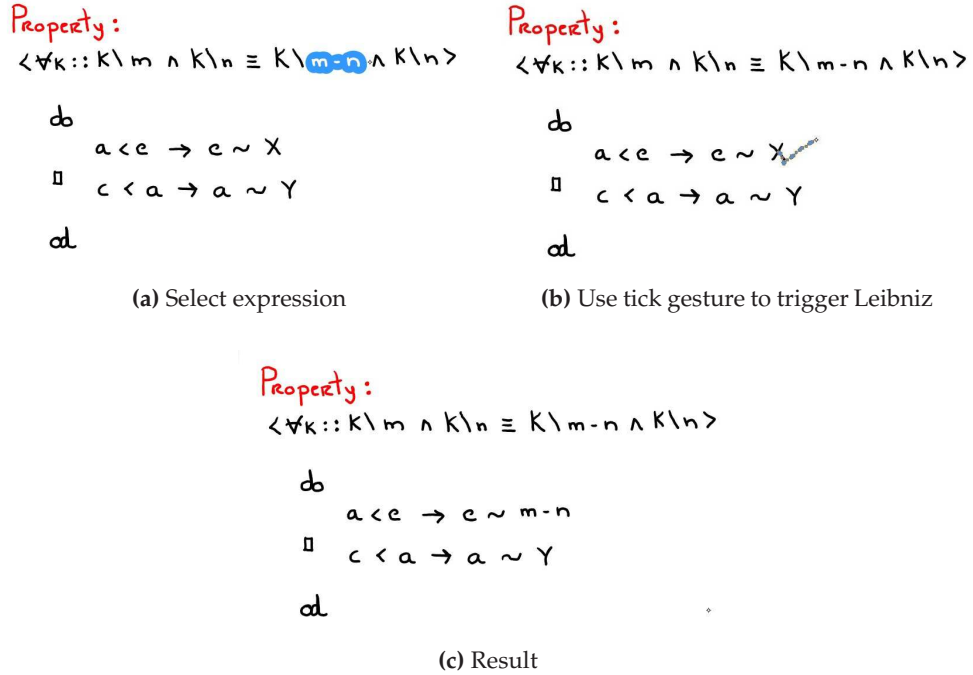 Property:
<∀K:: K\m ∧ K\n ≡ K\m-n ∧ K\n>
do
a<c → c ~ X
▯ c < a → a ~ Y
od
(a) Select expression
Property:
<∀K:: K\m ∧ K\n ≡ K\m-n ∧ K\n>
do
a<c → c ~ X
▯ c < a → a ~ Y
od
(b) Use tick gesture to trigger Leibniz
Property:
<∀K:: K\m ∧ K\n ≡ K\m-n ∧ K\n>
do
a<c → c ~ m-n
▯ c < a → a ~ Y
od
(c) Result